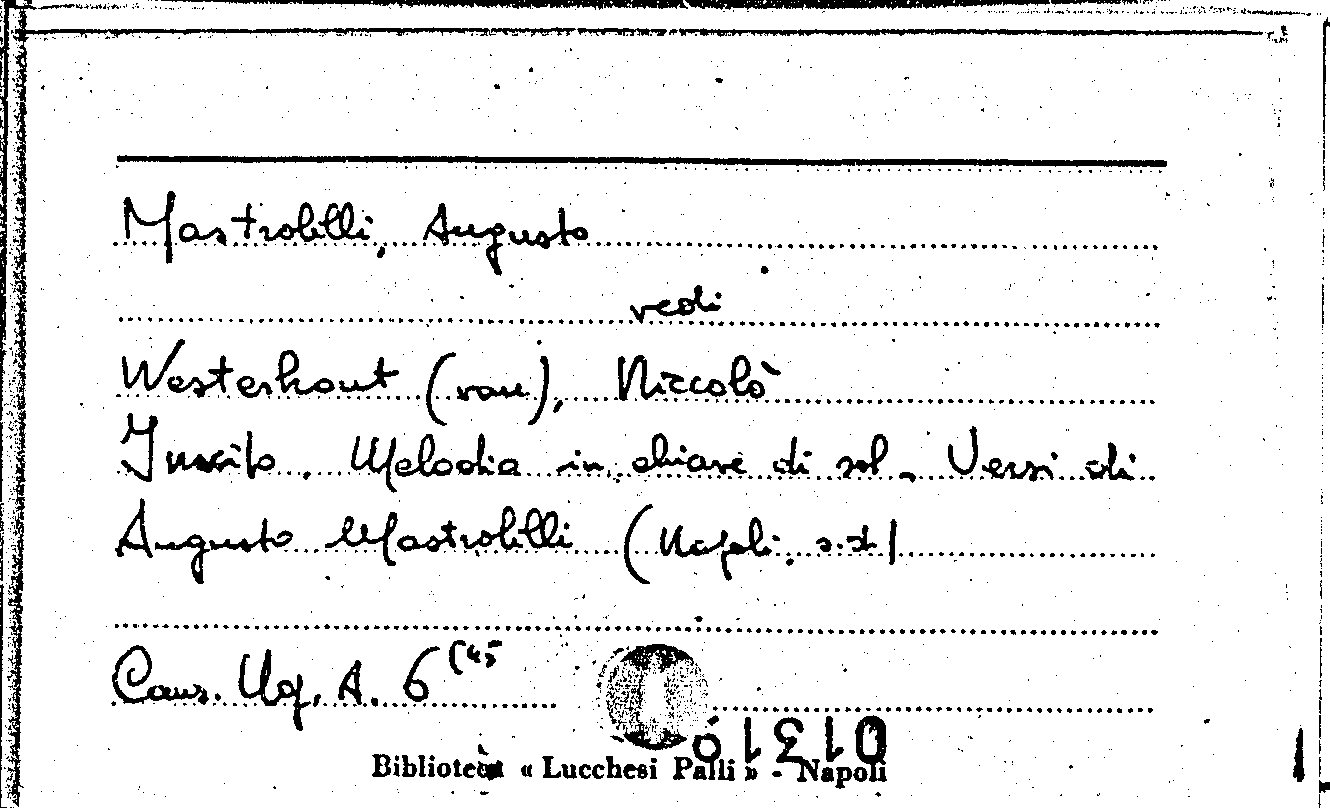 Mastrolilli, Augusto
vedi
Westerhout (van), Niccolò
Invito. Melodia in chiave di sol. Versi di
Augusto Mastrolilli (Napoli, s.d)
Cans. Ug. A. 6 (45
Biblioteca « Lucchesi Palli » - Napoli